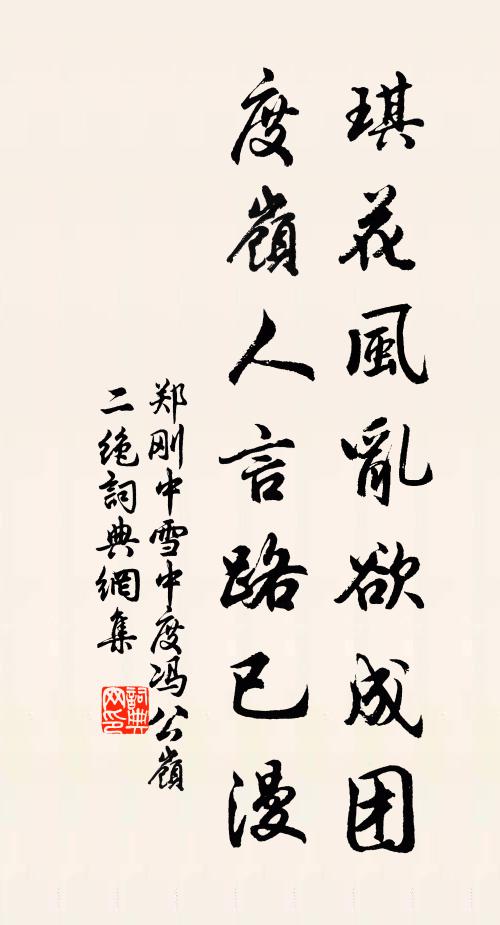 琪花風亂欲成团
度嶺人言路已漫
郑刚中雪中度冯公嶺
二绝詞典網集
詞典网印